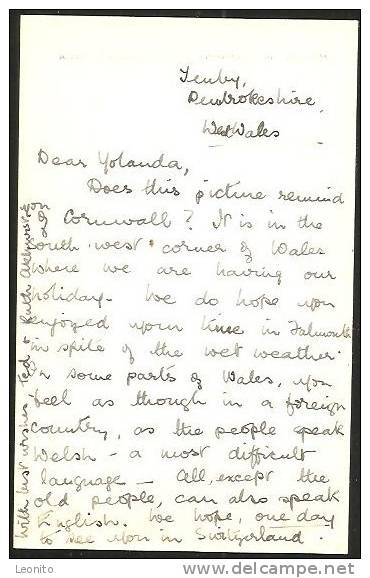 Tenby,
Pembrokeshire
West Wales
Dear Yolanda,
Does this picture remind
of Cornwall? It is in the
south west corner of Wales
where we are having our
holiday. We do hope you
enjoyed your time in Falmouth
in spite of the wet weather.
In some parts of Wales, you
feel as though in a foreign
country, as the people speak
Welsh - a most difficult
language - All, except the
old people, can also speak
English. We hope, one day
to see you in Switzerland.
With best wishes Ted & Ruth
www.delcampe.net
Leonito